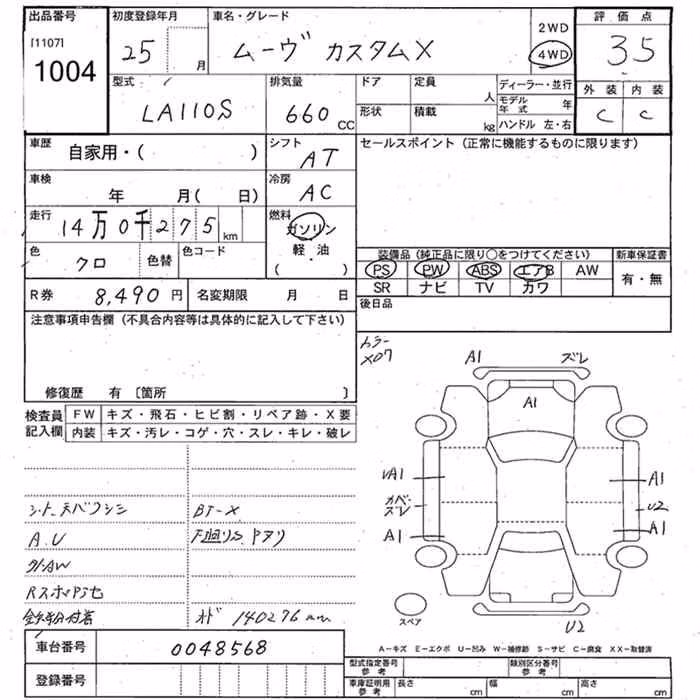 出品番号
[1107]
1004
初度登録年月
25 月
車名・グレード
ムーヴ カスタムX
2WD
4WD
評価点
3.5
外装 内装
C C
型式
LA110S
排気量
660 CC
ドア
定員
人
形状
積載
kg
ディーラー・並行
モデル年式 年
ハンドル 左・右
車歴
自家用・( )
シフト
AT
セールスポイント(正常に機能するものに限ります)
車検
年 月( 日)
冷房
AC
走行
14万0千275km
燃料
ガソリン
軽・油
( )
色
クロ
色替
色コード
装備品(純正品に限り○をつけてください)
新車保証書
PS PW ABS エアB AW
SR ナビ TV カワ
有・無
R券 8,490円
名変期限 月 日
後日品
注意事項申告欄(不具合内容等は具体的に記入して下さい)
修復歴 有〔箇所 〕
検査員記入欄
FW キズ・飛石・ヒビ割・リペア跡・X要
内装 キズ・汚レ・コゲ・穴・スレ・キレ・破レ
BT-X
A.U
外AW
鉄粉付着
オド 140276km
ミラー
X07
A1 ズレ
A1
UA1
カベ・ズレ
A1
A1
U2
A1
U2
スペア
A-キズ E-エクボ U-凹み W-補修跡 S-サビ C-腐食 XX-取替済
車台番号
0048568
登録番号
型式指定番号参考
類別区分番号参考
車庫証明用参考
長さ cm
幅 cm
高さ cm